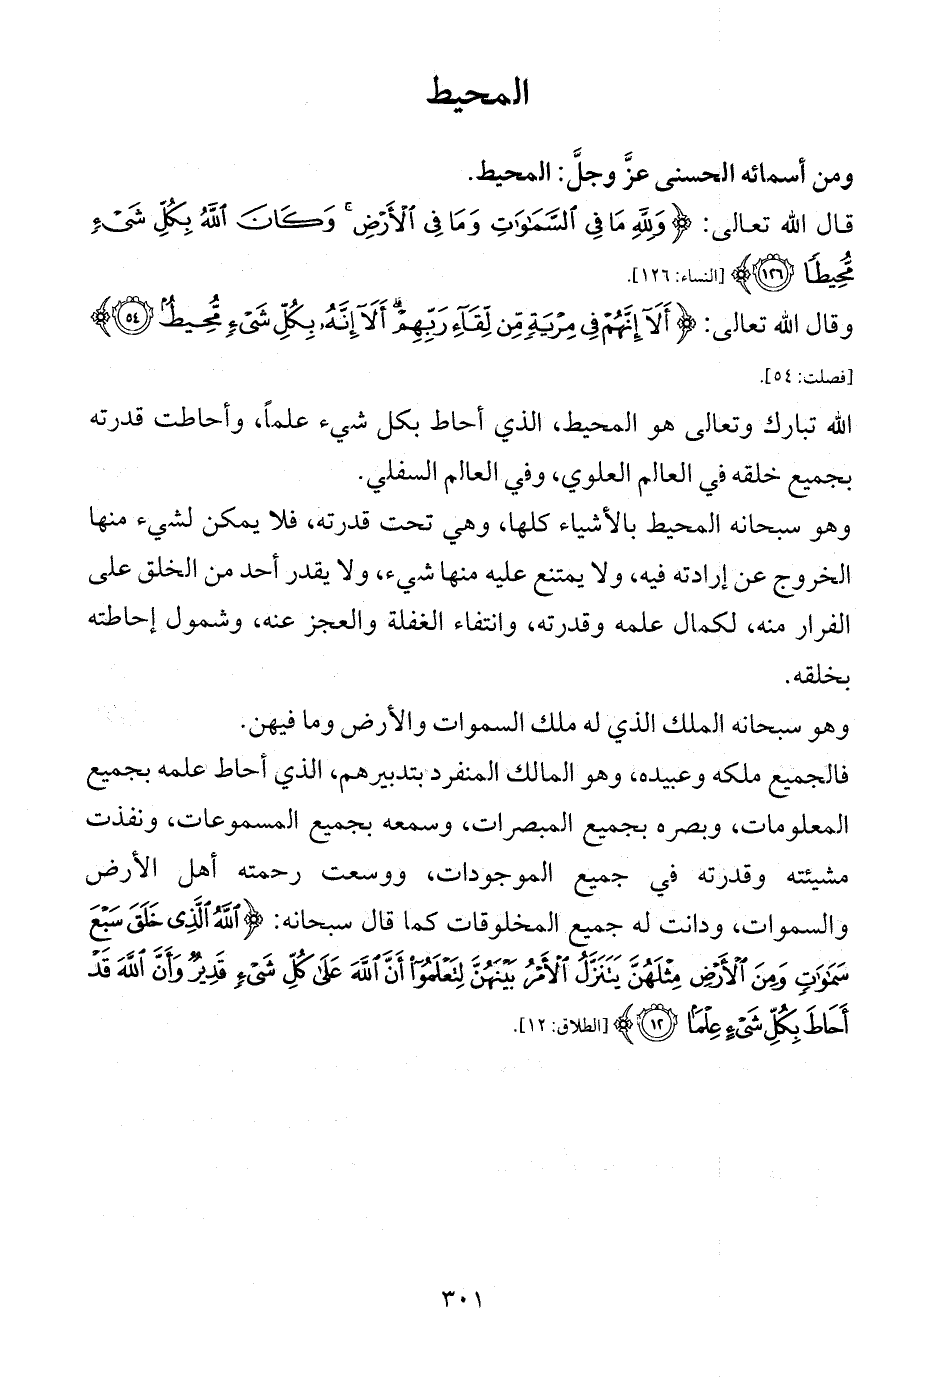 المحيط
ومن أسمائه الحسنى عزَّ وجلَّ: المحيط.
قال الله تعالى: ﴿وَلِلَّهِ مَا فِي ٱلسَّمَٰوَٰتِ وَمَا فِي ٱلْأَرْضِ ۚ وَكَانَ ٱللَّهُ بِكُلِّ شَىْءٍ
مُّحِيطًا ١٢٦﴾ [النساء: ١٢٦].
وقال الله تعالى: ﴿أَلَآ إِنَّهُمْ فِي مِرْيَةٍ مِّن لِّقَآءِ رَبِّهِمْ ۗ أَلَآ إِنَّهُۥ بِكُلِّ شَىْءٍ مُّحِيطٌۢ ٥٤﴾
[فصلت: ٥٤].
الله تبارك وتعالى هو المحيط، الذي أحاط بكل شيء علماً، وأحاطت قدرته
بجميع خلقه في العالم العلوي، وفي العالم السفلي.
وهو سبحانه المحيط بالأشياء كلها، وهي تحت قدرته، فلا يمكن لشيء منها
الخروج عن إرادته فيه، ولا يمتنع عليه منها شيء، ولا يقدر أحد من الخلق على
الفرار منه، لكمال علمه وقدرته، وانتفاء الغفلة والعجز عنه، وشمول إحاطته
بخلقه.
وهو سبحانه الملك الذي له ملك السموات والأرض وما فيهن.
فالجميع ملكه وعبيده، وهو المالك المنفرد بتدبيرهم، الذي أحاط علمه بجميع
المعلومات، وبصره بجميع المبصرات، وسمعه بجميع المسموعات، ونفذت
مشيئته وقدرته في جميع الموجودات، ووسعت رحمته أهل الأرض
والسموات، ودانت له جميع المخلوقات كما قال سبحانه: ﴿ٱللَّهُ ٱلَّذِى خَلَقَ سَبْعَ
سَمَٰوَٰتٍ وَمِنَ ٱلْأَرْضِ مِثْلَهُنَّ يَتَنَزَّلُ ٱلْأَمْرُ بَيْنَهُنَّ لِتَعْلَمُوٓا۟ أَنَّ ٱللَّهَ عَلَىٰ كُلِّ شَىْءٍ قَدِيرٌ وَأَنَّ ٱللَّهَ قَدْ
أَحَاطَ بِكُلِّ شَىْءٍ عِلْمًۢا ١٢﴾ [الطلاق: ١٢].
٣٠١